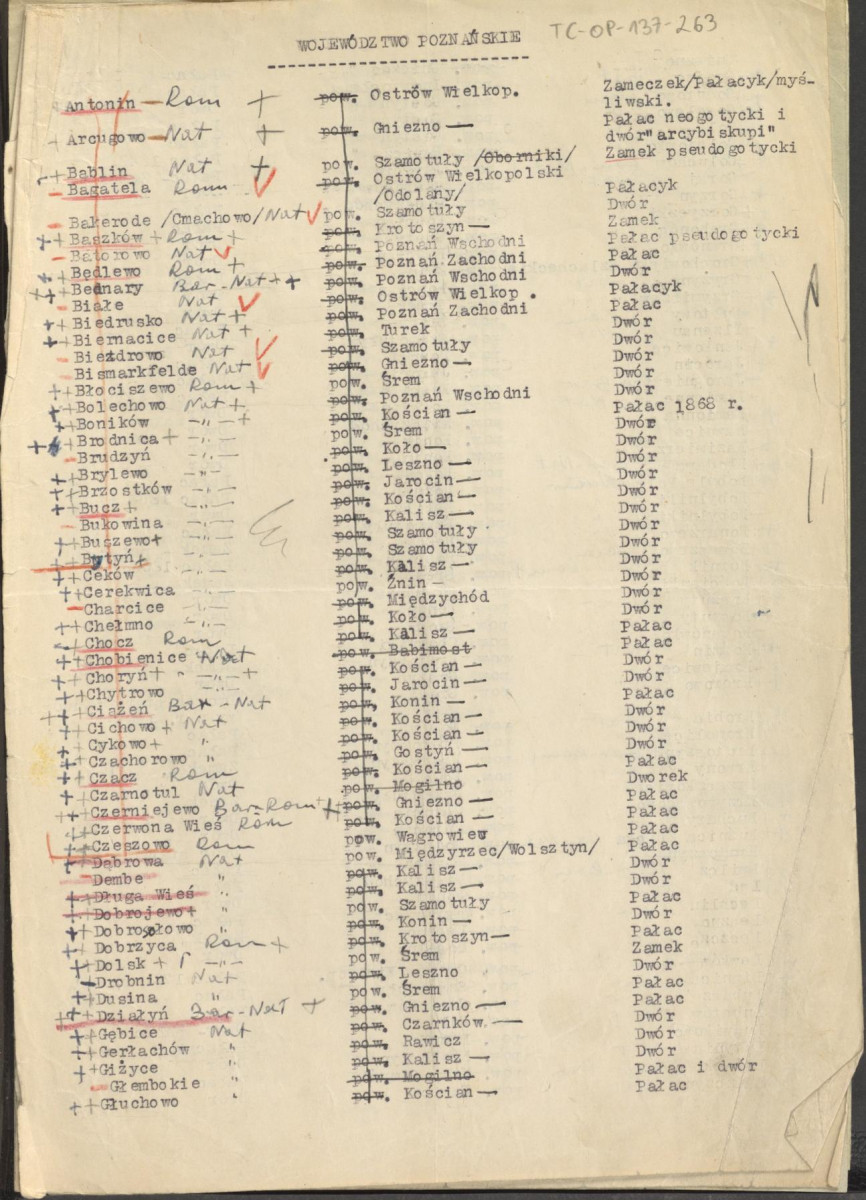 WOJEWÓDZTWO POZNAŃSKIE TC-OP-137-263
Antonin - Rom + pow. Ostrów Wielkop. Zameczek/Pałacyk/myś-
liwski.
Arcugowo - Nat + pow. Gniezno — Pałac neogotycki i
dwór"arcybiskupi"
++Bablin Nat + pow. Szamotuły /Oborniki/ Zamek pseudogotycki
-Bagatela Rom ✓ pow. Ostrów Wielkopolski
/Odolany/ Pałacyk
-Bakerode /Cmachowo/ Nat ✓ pow. Szamotuły Dwór
++Baszków + Rom + pow. Krotoszyn — Zamek
-Batorowo Nat ✓ pow. Poznań Wschodni Pałac pseudogotycki
++Będlewo Rom + pow. Poznań Zachodni Pałac
++Bednary Bar-Nat ++ pow. Poznań Wschodni Dwór
-Białe Nat ✓ pow. Ostrów Wielkop. Pałacyk
++Biedrusko Nat + pow. Poznań Zachodni Pałac
++Biernacice Nat + pow. Turek Dwór
-Bieżdrowo Nat ✓ pow. Szamotuły Dwór
-Bismarkfelde Nat ✓ pow. Gniezno — Dwór
++Błociszewo Rom + pow. Śrem Dwór
++Bolechowo Nat + pow. Poznań Wschodni Dwór
++Boników -"- + pow. Kościan — Pałac 1868 r.
++Brodnica + -"- pow. Śrem Dwór
-Brudzyń -"- pow. Koło — Dwór
++Brylewo -"- pow. Leszno — Dwór
++Brzostków -"- pow. Jarocin — Dwór
++Bucz + -"- pow. Kościan — Dwór
-Bukowina -"- pow. Kalisz — Dwór
++Buszewo + -"- pow. Szamotuły Dwór
++Bytyń + -"- pow. Szamotuły Dwór
++Ceków -"- pow. Kalisz — Dwór
++Cerekwica -"- pow. Żnin — Dwór
-Charcice -"- pow. Międzychód Dwór
++Chełmno -"- pow. Koło — Dwór
-Chocz Rom pow. Kalisz — Pałac
++Chobienice Nat pow. Babimost Pałac
++Choryń + -"- + pow. Kościan — Dwór
++Chytrowo " pow. Jarocin — Dwór
++Ciążeń Bar-Nat pow. Konin — Pałac
++Cichowo + Nat pow. Kościan — Dwór
++Cykowo + " pow. Kościan — Dwór
++Czachorowo " pow. Gostyń — Dwór
++Czacz Rom pow. Kościan — Pałac
++Czarnotul Nat pow. Mogilno Dworek
++Czerniejewo Bar-Rom ++ pow. Gniezno — Pałac
++Czerwona Wieś Rom pow. Kościan — Pałac
++Czeszowo Rom pow. Wągrowiec Pałac
++Dąbrowa Nat pow. Międzyrzec/Wolsztyn/ Pałac
-Dembe " pow. Kalisz — Dwór
++Długa Wieś " pow. Kalisz — Dwór
++Dobrojewo + " pow. Szamotuły Pałac
++Dobrosołowo " pow. Konin — Dwór
++Dobrzyca Rom + pow. Krotoszyn — Pałac
++Dolsk + -"- pow. Śrem Zamek
-Drobnin Nat pow. Leszno Dwór
++Dusina " pow. Śrem Pałac
++Działyń Bar-Nat + pow. Gniezno — Pałac
++Gębice Nat pow. Czarnków — Dwór
++Gerłachów " pow. Rawicz Dwór
++Giżyce " pow. Kalisz — Dwór
-Głembokie " pow. Mogilno Pałac i dwór
++Głuchowo " pow. Kościan — Pałac